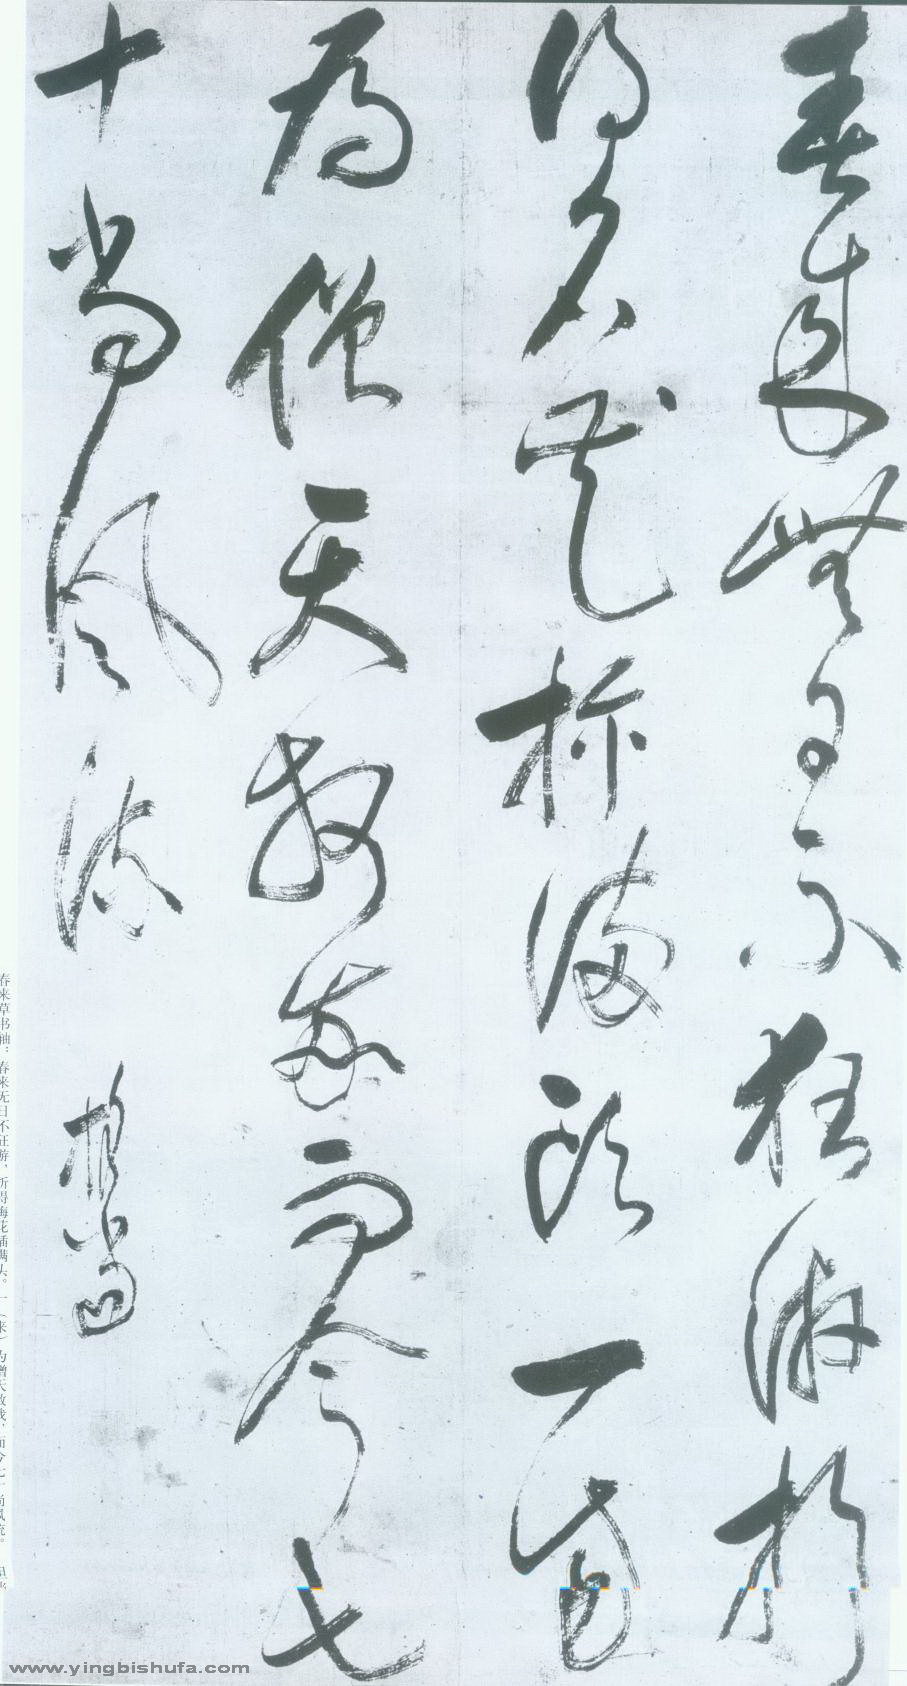 春來無日不狂游折
得名花插滿頭一
為僧天教我而今七
十尚風流
担當
春来草书轴：春来无日不狂游，折得梅花插满头。一（来）为僧天教我，而今七十尚风流。
www.yingbishufa.com